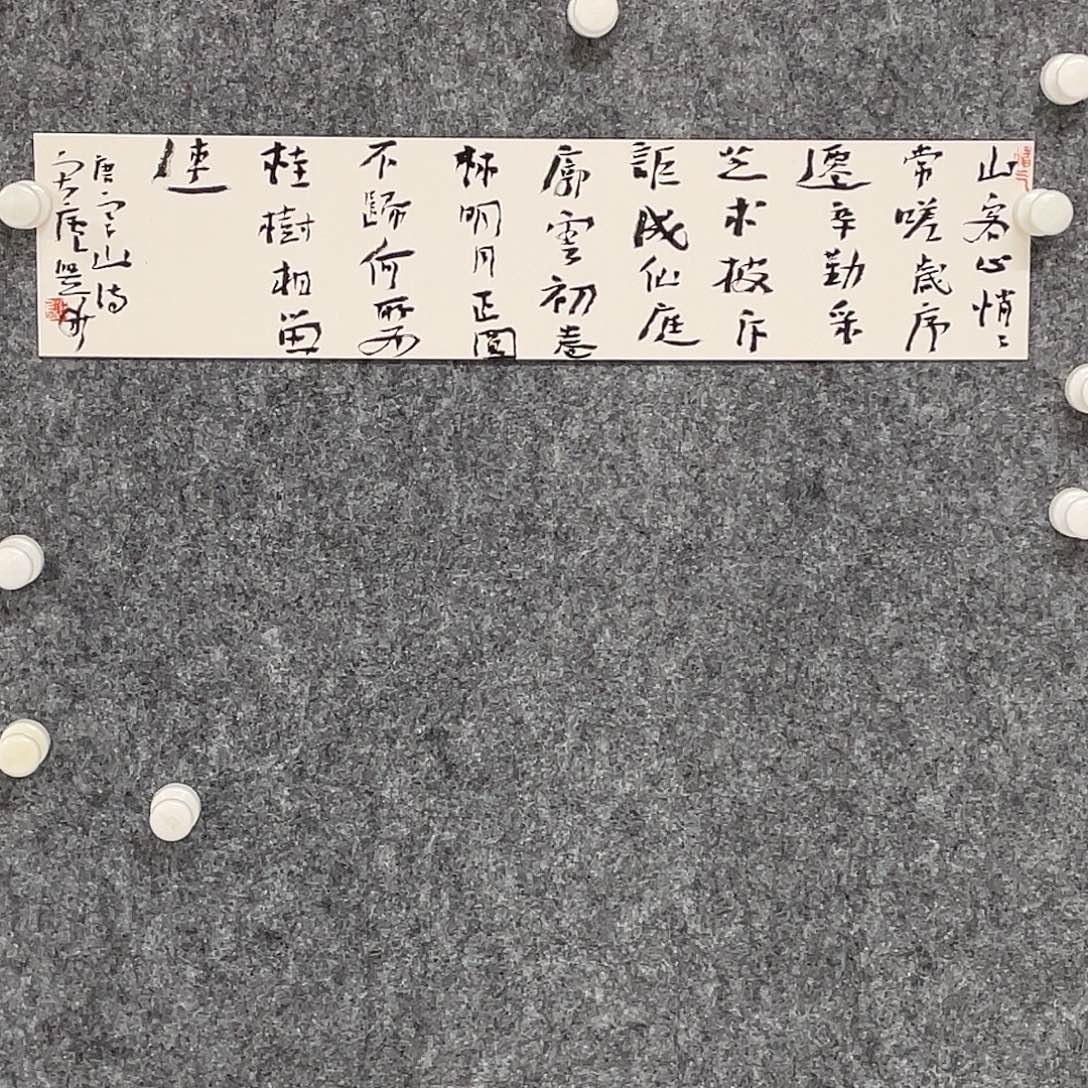 山客心悄〻
常嗟歲序
遷辛勤采
芝朮披斥
詎成仙庭
廓雲初卷
林明月正圓
不歸何所為
桂樹相留
連
唐寒山詩